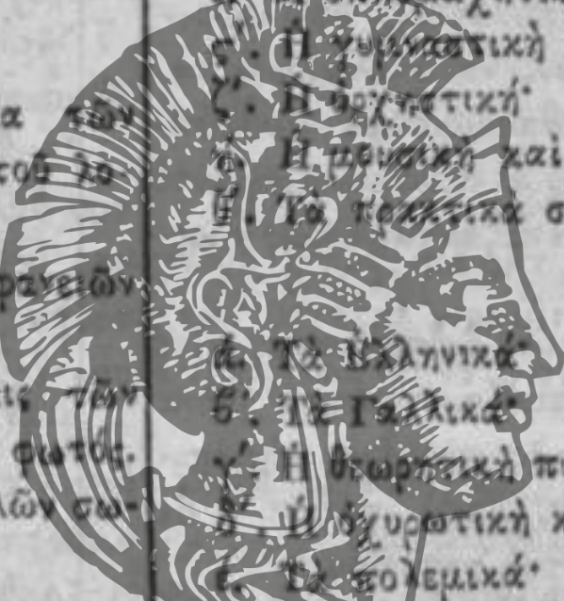 α τῶν
τοῦ λο-
φανειῶν
τῶν
φωτός.
λῶν σω-
ς′. Ἡ γυμναστικὴ
ζ′. Ἡ ὀρχηστικὴ·
Ἡ μουσικὴ καὶ
Τὰ πρακτικὰ σ
α. Τὰ Ἑλληνικά·
β′. Τὰ Γαλλικά·
γ′. Ἡ θεωρητικὴ πυ
δ′. Ἡ ὀχυρωτικὴ κ
ε. Τὰ πολεμικά·